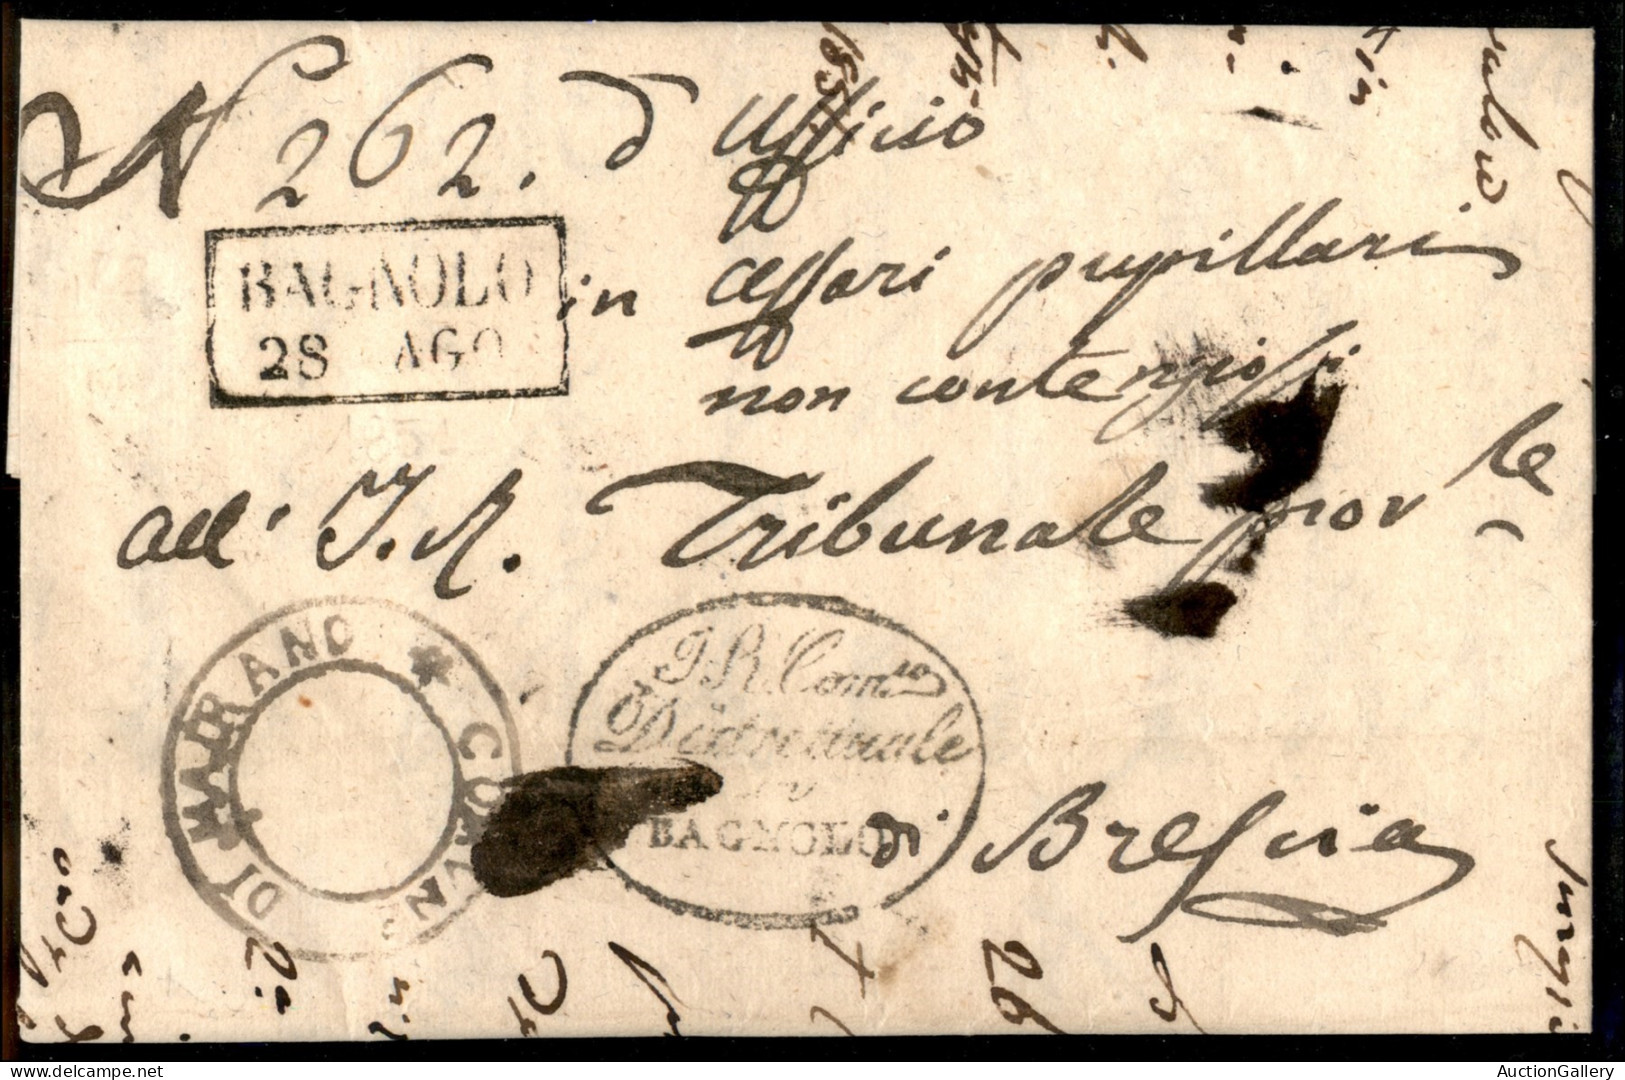 N 262. d'ufficio
BAGNOLO
28 AGO
in affari pupillari
non contenziosi
all' I. R. Tribunale prov^le
COMUNE DI MAIRANO *
I R Com^rio
Distrettuale
in
BAGNOLO
di Brescia
26
AuctionGallery